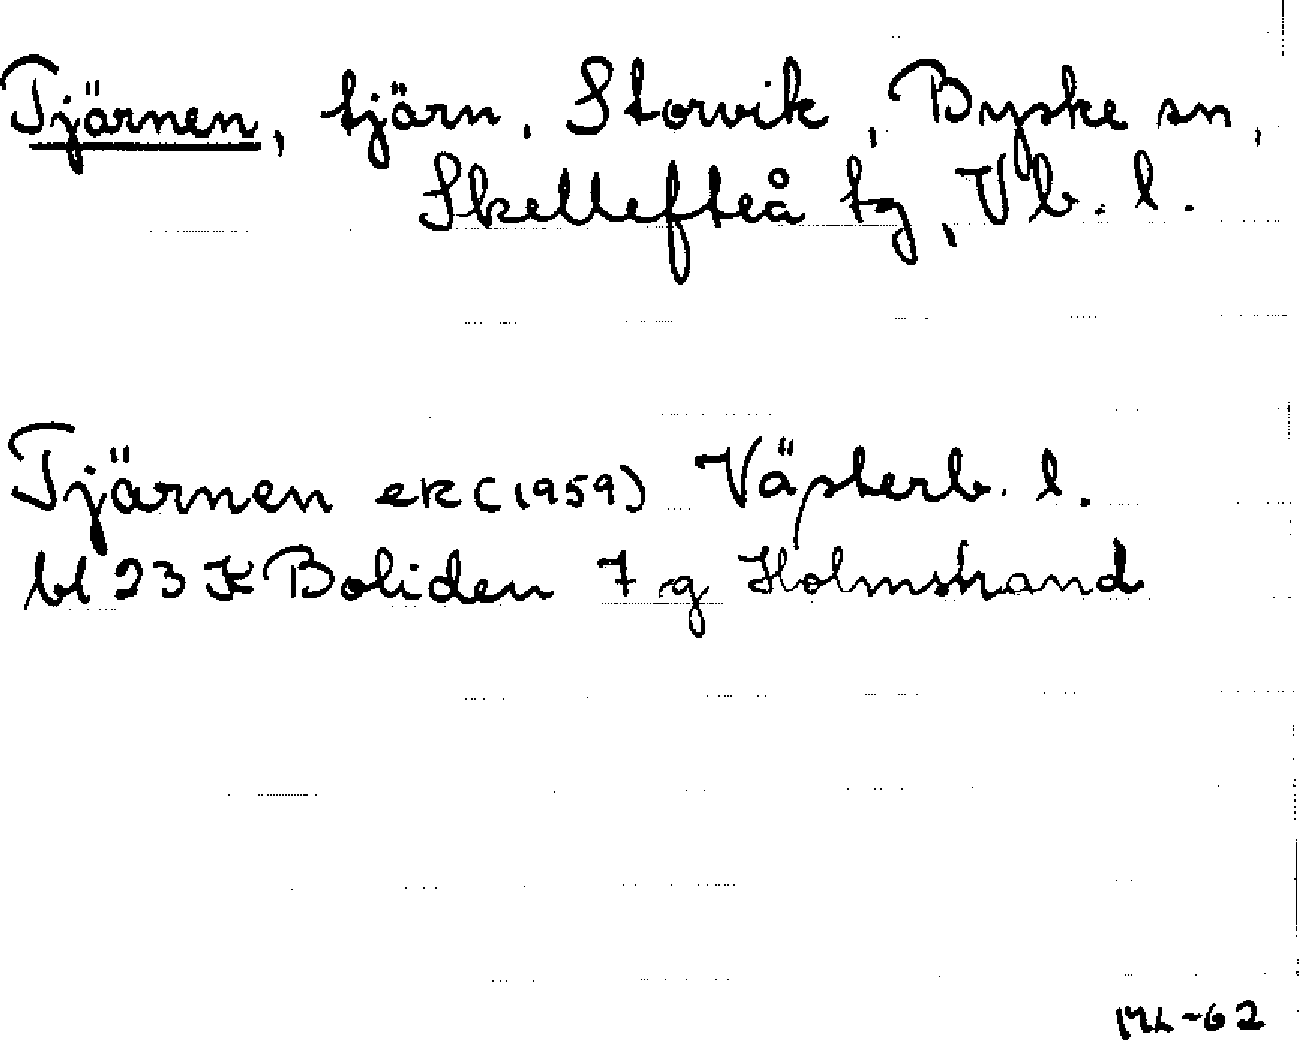 Tjärnen, tjärn, Storvik, Byske sn,
Skellefteå tg, Vb. l.
Tjärnen ek (1959) Västerb. l.
bl 23 K Boliden 7 g Holmstrand
ML-62